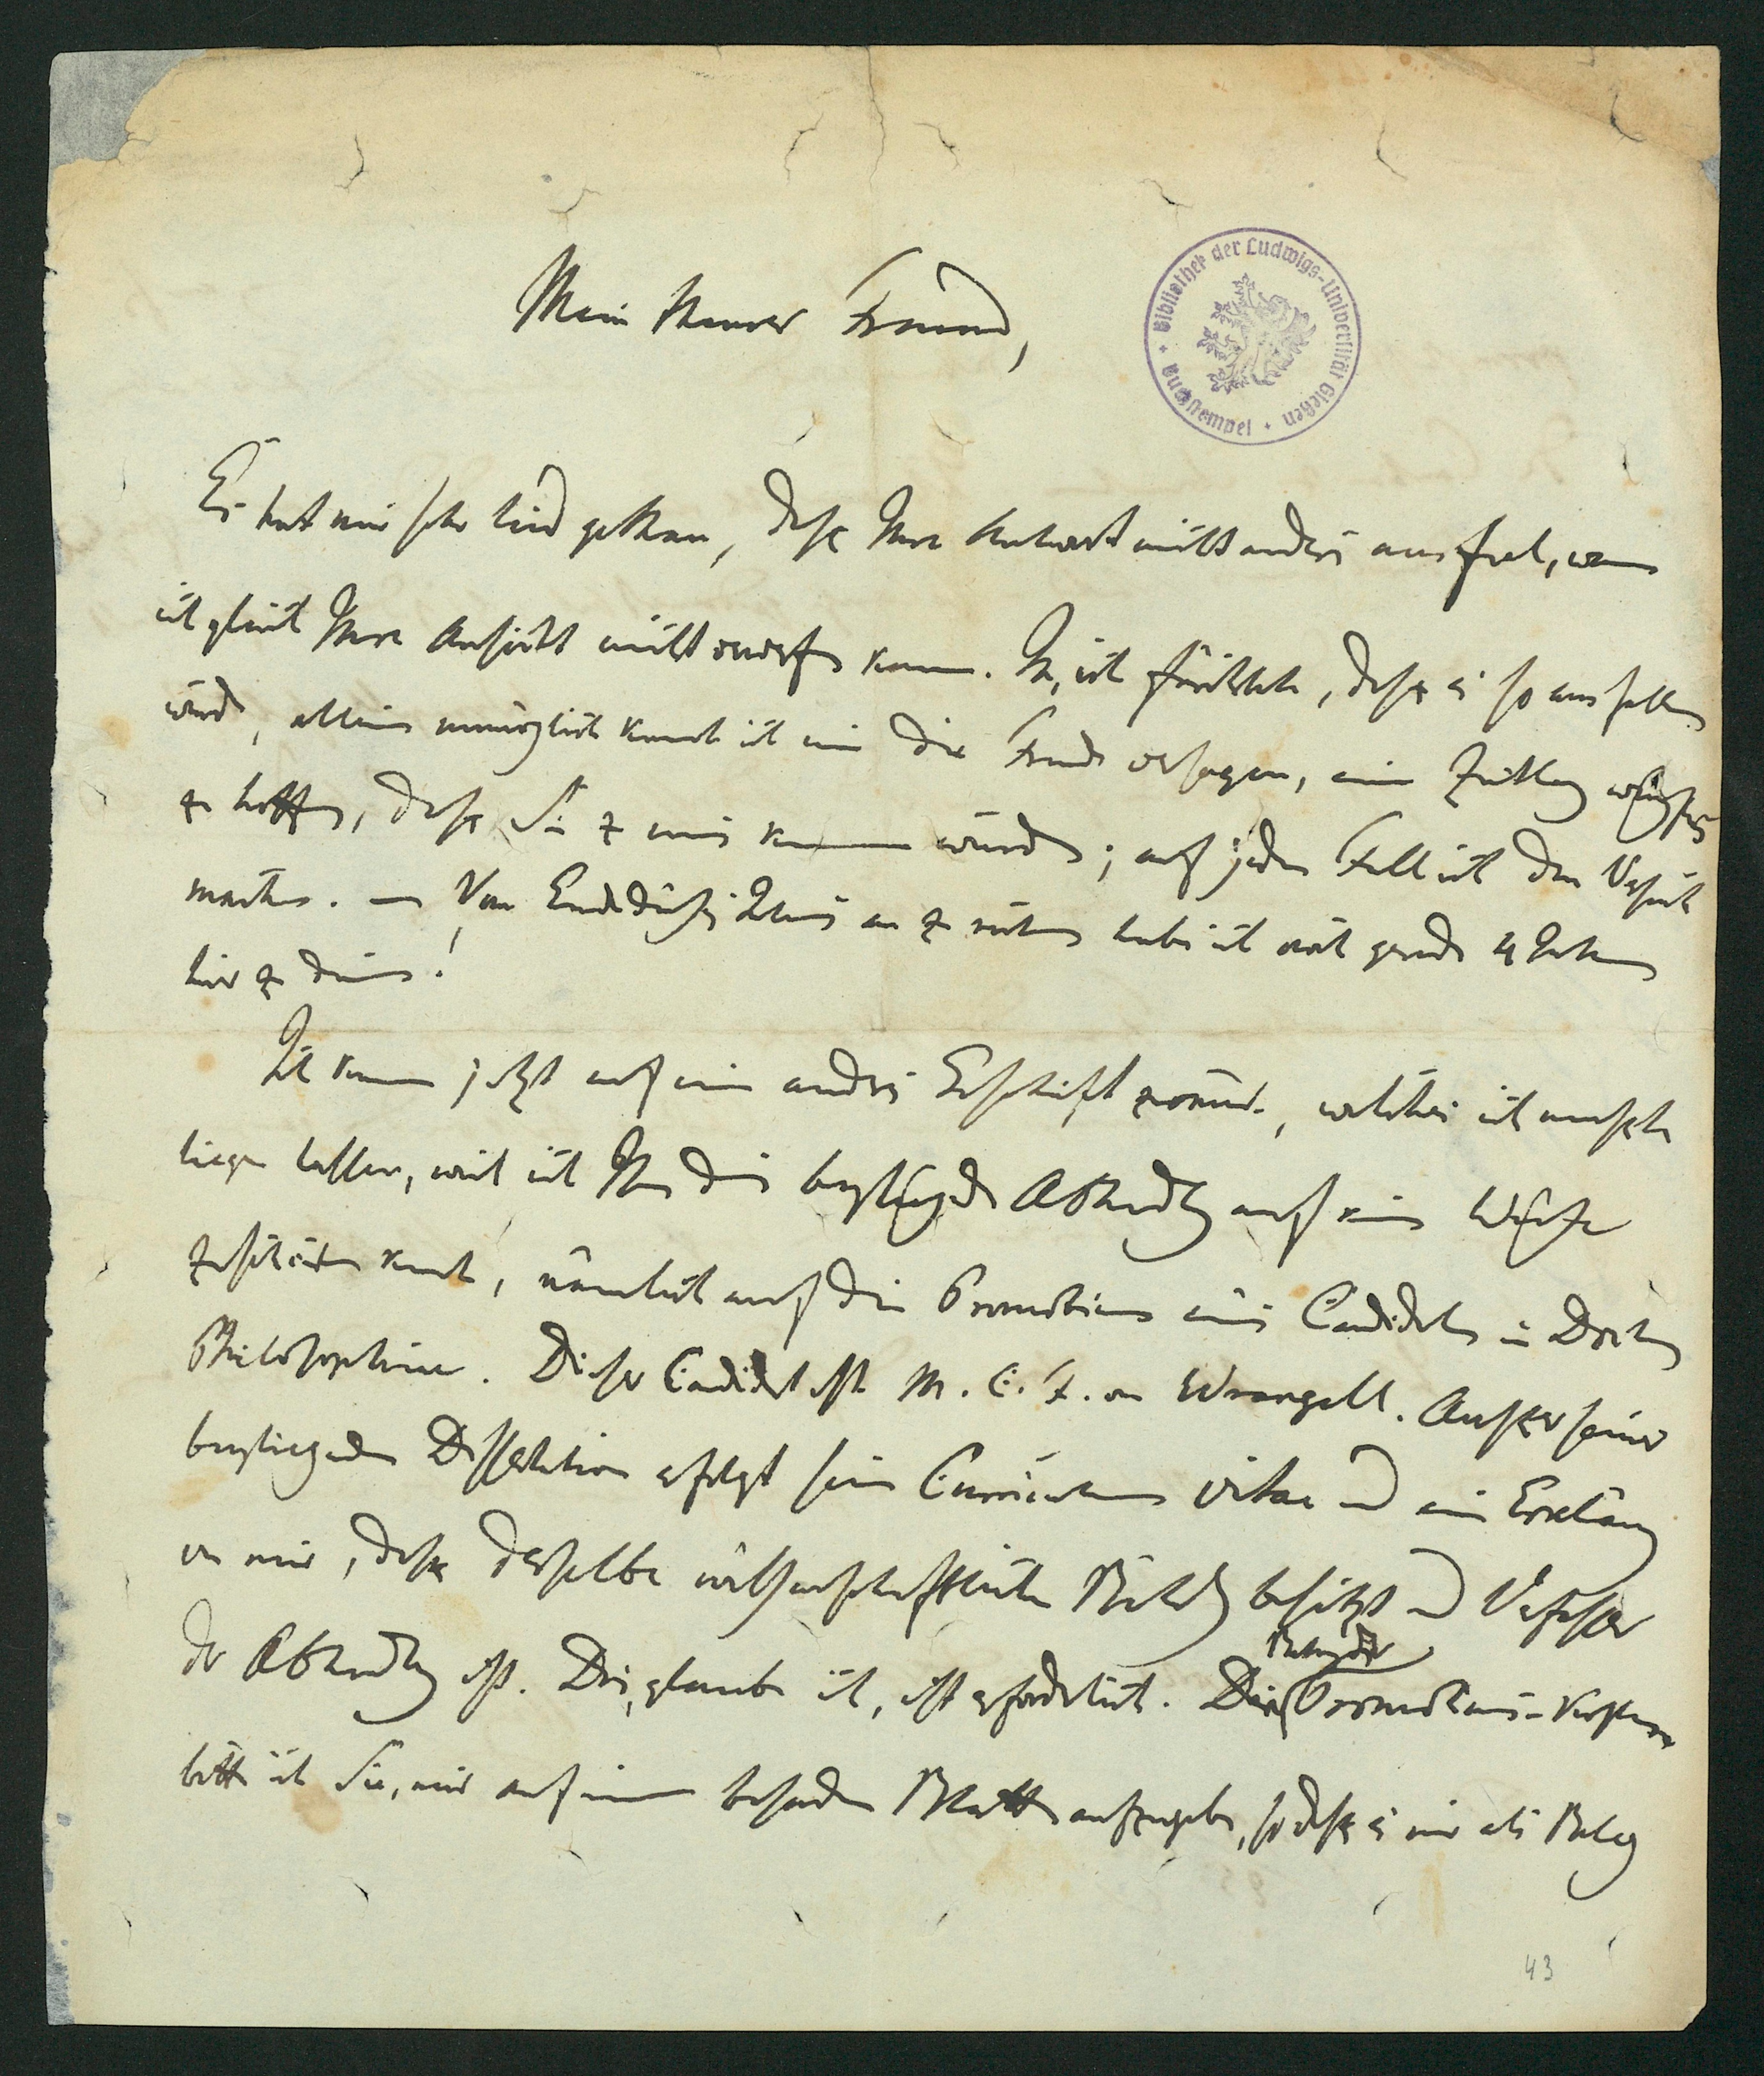 Mein theurer Freund,
Bibliothek der Ludwigs-Universität Gießen
Buchstempel
Es hat mir sehr leid gethan, daß Ihre Antwort nicht anders ausfiel, wenn
ich gleich Ihre Ansicht nicht verwerfen kann. Ja, ich fürchtete, daß es so ausfallen
würde, allein unmöglich konnt ich mir die Freude versagen, eine Zeitlang
zu hoffen, daß Sie zu uns kommen würden; auf jeden Fall ich den Versuch
machen. – Von Ende dieses Jahres an zu rechnen habe ich noch gerade 4 Jahre
hier zu dienen!
Ich komme jetzt auf ein andres Geschäft zurück, welches ich mußte
liegen lassen, weil ich Ihnen die beyliegende Abhandlung auf keine Weise
zuschicken konnte, nämlich auf die Promotion eines Candidaten in Doctor
Philosophiae. Dieser Candidat ist M. C. F. von Wrangell. Außer seiner
beyliegenden Dissertation erfolgt sein Curriculum vitae und eine Erklärung
von mir, daß derselbe wissenschaftliche Bildung besitzt und Verfasser
der Abhandlung ist. Dies, glaube ich, ist erforderlich. Die Promotions-Kosten
bitte ich Sie, mir auf einem besondern Blatte aufzugeben, so daß es mir als Beleg
43